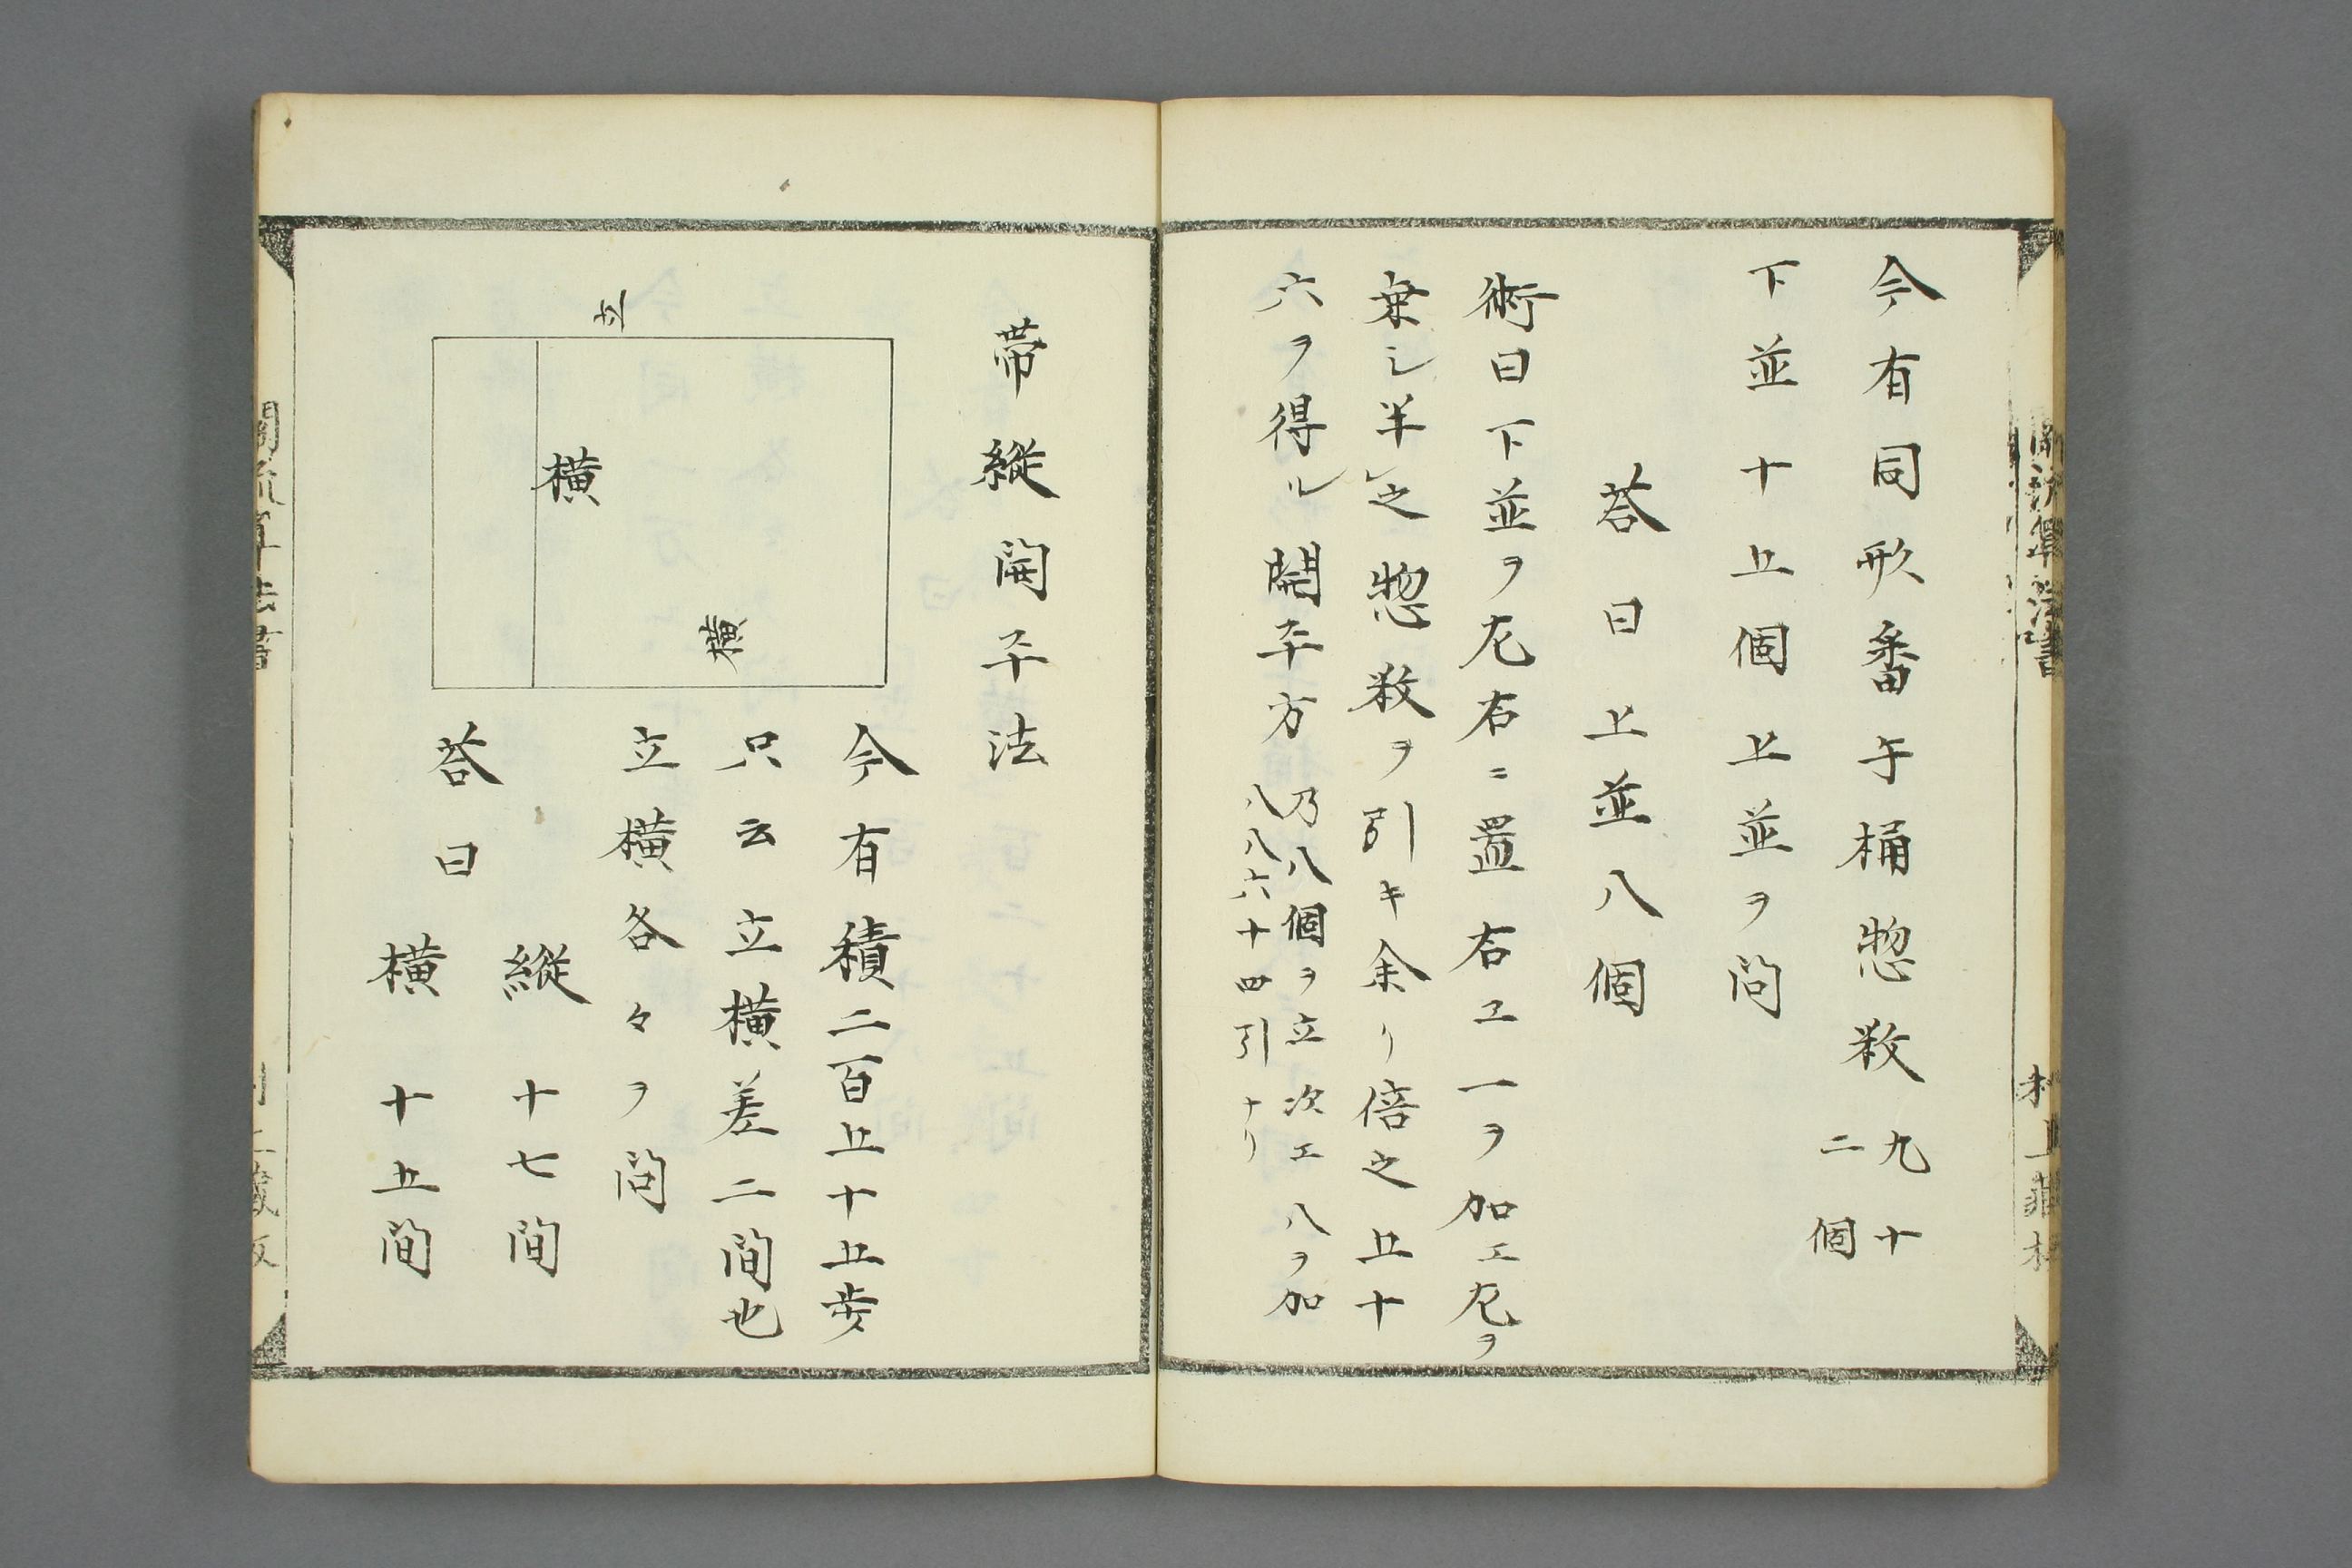 今有同形番午桶惣数九十二個
下並十五個上並ヲ問
荅曰上並八個
術曰下並ヲ左右ニ置右エ一ヲ加エ左ヲ
乗シ半之惣数ヲ引キ余リ倍之五十
六ヲ得ル開平方
乃八個ヲ立次エ八ヲ加
八八六十四引ナリ
帯縱開平法
立
横
横
今有積二百五十五歩
只云立横差二間也
立横各々ヲ問
荅曰
縱十七間
横十五間
関流算法書